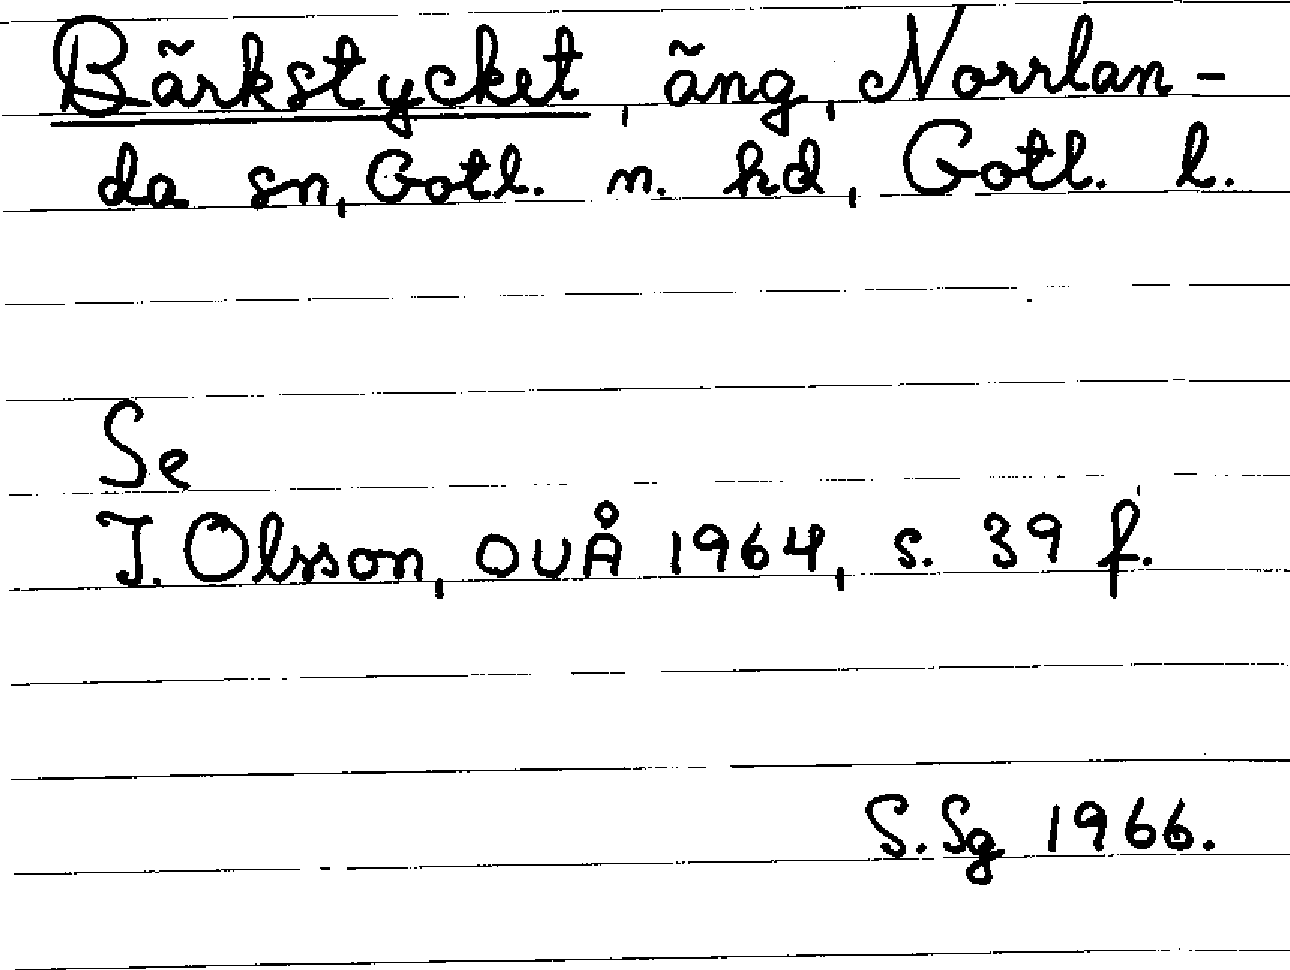 Bärkstycket, äng, Norrlan-
da sn, Gotl. n. hd, Gotl. l.
Se
I. Olsson, OUÅ 1964, s. 39 f.
S. Sg 1966.